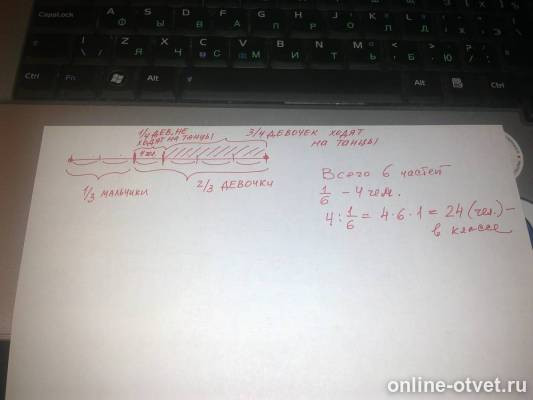 CapsLock A S D F G H J K L
Ф Ы В А П Р О Л Д
Z X C V B N M
Я Ч С М И Т Ь Б Ю
Ctrl Fn Alt Alt Ctrl
1/4 ДЕВ. НЕ
ХОДЯТ НА ТАНЦЫ
3/4 ДЕВОЧЕК ХОДЯТ
НА ТАНЦЫ
4 чел.
1/3 МАЛЬЧИКИ
2/3 ДЕВОЧКИ
Всего 6 частей
1/6 - 4 чел.
4 : 1/6 = 4 · 6 · 1 = 24 (чел.) -
в классе
online-otvet.ru